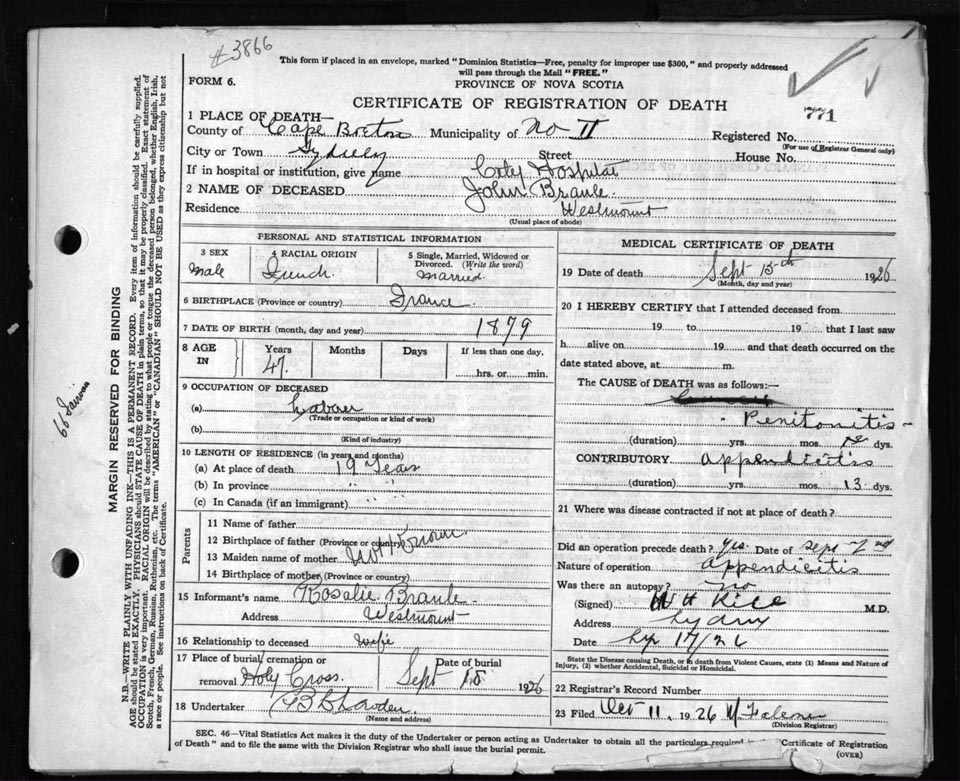 #3866
This form if placed in an envelope, marked "Dominion Statistics—Free, penalty for improper use $300," and properly addressed
will pass through the Mail "FREE."
FORM 6.
PROVINCE OF NOVA SCOTIA
CERTIFICATE OF REGISTRATION OF DEATH
771
1 PLACE OF DEATH—
County of Cape Breton Municipality of No II Registered No.
(For use of Registrar General only)
City or Town Sydney Street House No.
If in hospital or institution, give name City Hospital
2 NAME OF DECEASED John Braule.
Residence Westmount
(Usual place of abode)
PERSONAL AND STATISTICAL INFORMATION
3 SEX
Male
4 RACIAL ORIGIN
French.
5 Single, Married, Widowed or
Divorced. (Write the word)
Married.
6 BIRTHPLACE (Province or country) France
7 DATE OF BIRTH (month, day and year) 1879
8 AGE IN
Years Months Days If less than one day,
47. hrs. or min.
9 OCCUPATION OF DECEASED
(a) Labour
(Trade or occupation or kind of work)
(b)
(Kind of industry)
10 LENGTH OF RESIDENCE (in years and months)
(a) At place of death 19 Years
(b) In province " "
(c) In Canada (if an immigrant) " "
Parents
11 Name of father
12 Birthplace of father (Province or country)
Not Known
13 Maiden name of mother
14 Birthplace of mother (Province or country)
15 Informant's name Rosalie Braule.
Address Westmount
16 Relationship to deceased wife
17 Place of burial, cremation or Date of burial
removal Holy Cross. Sept 18 1926
18 Undertaker
(Name and address)
MEDICAL CERTIFICATE OF DEATH
19 Date of death Sept 15th 1926
(Month, day and year)
20 I HEREBY CERTIFY that I attended deceased from
19 to 19 that I last saw
h alive on 19 and that death occurred on the
date stated above, at m.
The CAUSE of DEATH was as follows:—
Peritonitis
(duration) yrs. mos. dys.
CONTRIBUTORY Appendicitis
(duration) yrs. mos. 13 dys.
21 Where was disease contracted if not at place of death?
Did an operation precede death? Yes. Date of Sept 2nd
Nature of operation Appendicitis
Was there an autopsy? No
(Signed) W H Rice M.D.
Address Sydney
Date 17/26
State the Disease causing Death, or in death from Violent Causes, state (1) Means and Nature of
Injury, (2) whether Accidental, Suicidal or Homicidal.
22 Registrar's Record Number
23 Filed Oct 11, 1926
(Division Registrar)
SEC. 46—Vital Statistics Act makes it the duty of the Undertaker or person acting as Undertaker to obtain all the particulars required Certificate of Registration
of Death" and to file the same with the Division Registrar who shall issue the burial permit.
(OVER)
MARGIN RESERVED FOR BINDING
N.B.—WRITE PLAINLY WITH UNFADING INK—THIS IS A PERMANENT RECORD. Every item of information should be carefully supplied.
AGE should be stated EXACTLY. PHYSICIANS should STATE CAUSE OF DEATH in plain terms, so that it may be properly classified. Exact statement of
OCCUPATION is very important. RACIAL ORIGIN will be described by stating to what people or tongue the deceased person belonged, whether English, Irish,
Scotch, French, German, Russian, Ruthenian, etc. The terms "AMERICAN" or "CANADIAN" SHOULD NOT BE USED as they express citizenship but not
a race or people. See instructions on back of Certificate.